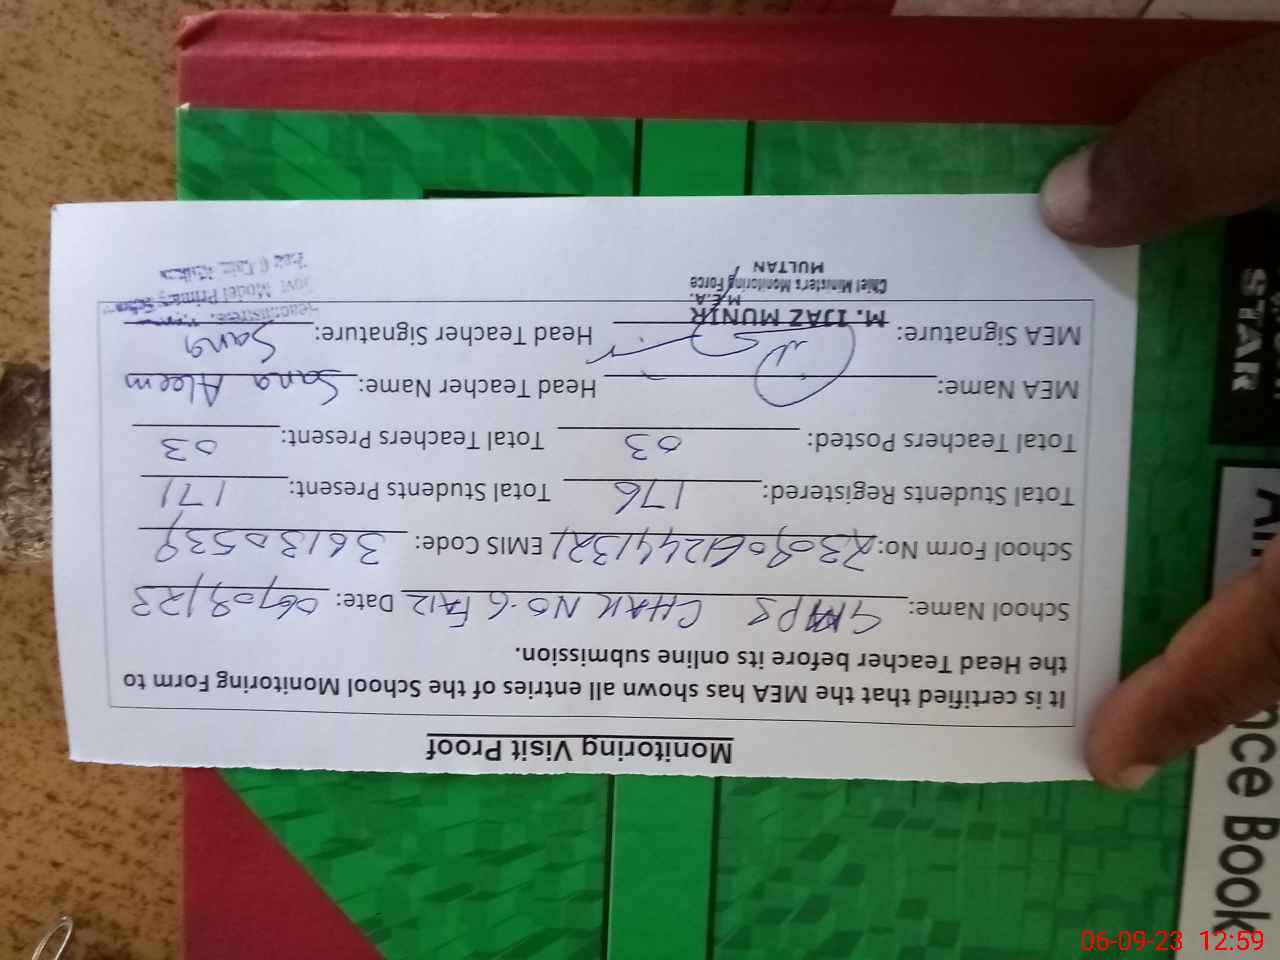 Monitoring Visit Proof
It is certified that the MEA has shown all entries of the School Monitoring Form to
the Head Teacher before its online submission.
School Name: GMPS CHAK NO.6 FAIZ Date: 06/09/23
School Form No: EMIS Code: 36130539
Total Students Registered: 176 Total Students Present: 171
Total Teachers Posted: 03 Total Teachers Present: 03
MEA Name: Head Teacher Name: Sana Aleem
MEA Signature: Head Teacher Signature: Sana
M. IJAZ MUNIR
M.E.A.
Chief Minister's Monitoring Force
MULTAN
Headmistress
Govt Model Primary School
STAR
nce Book
06-09-23 12:59